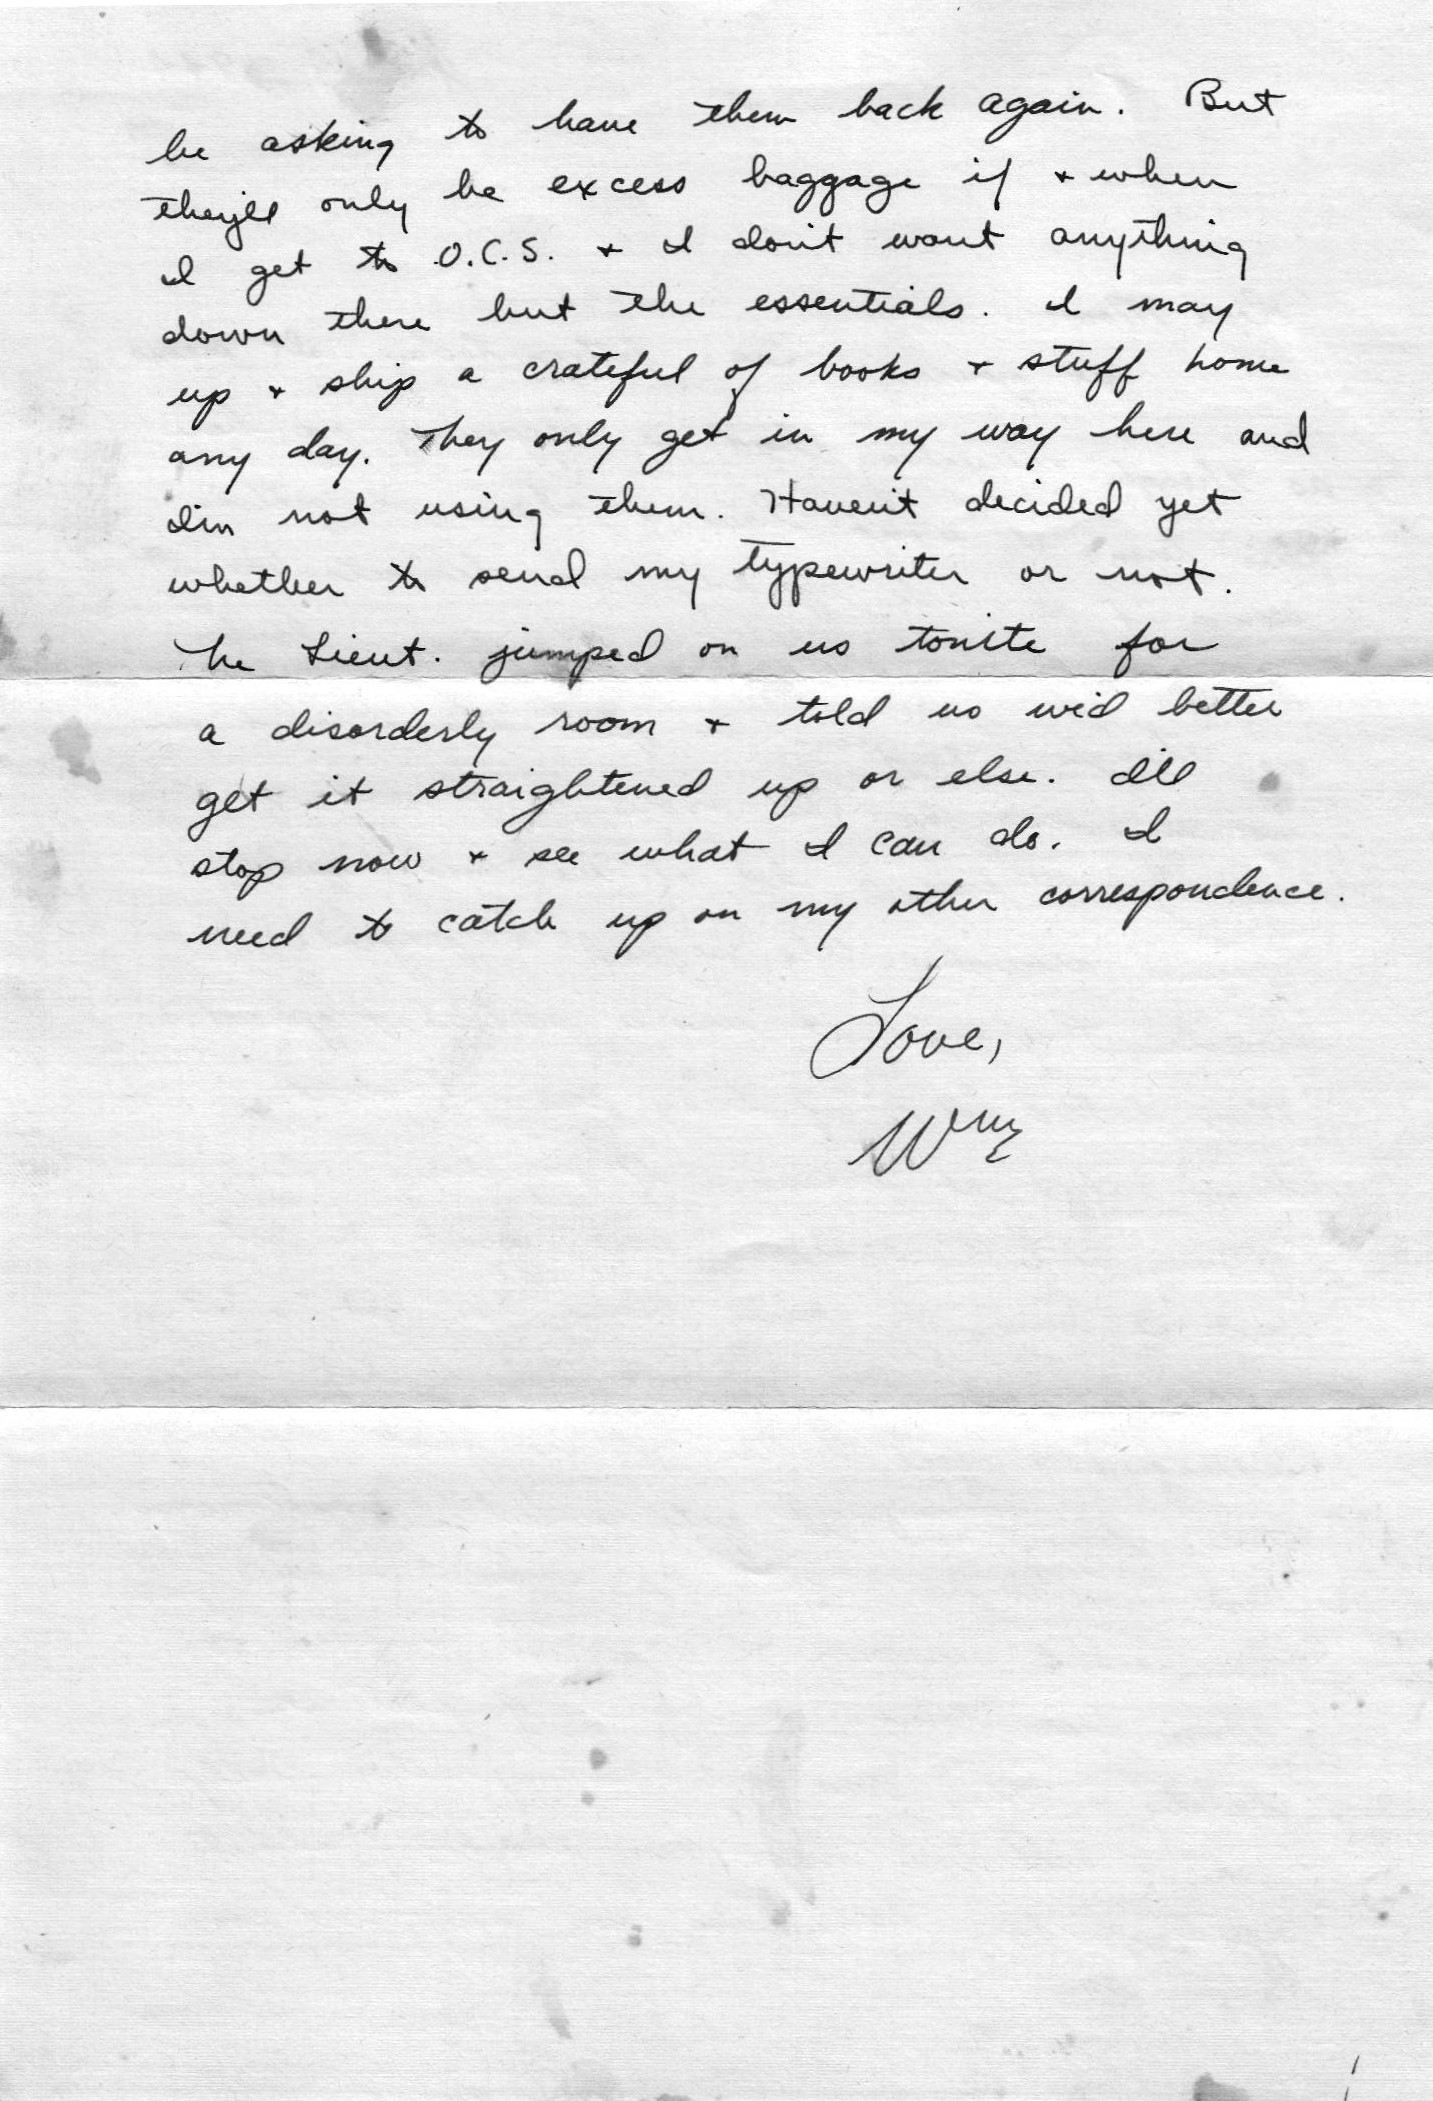 be asking to have them back again. But
they'll only be excess baggage if + when
I get to O.C.S. + I don't want anything
down there but the essentials. I may
up + ship a crateful of books + stuff home
any day. They only get in my way here and
I'm not using them. Haven't decided yet
whether to send my typewriter or not.
The Lieut. jumped on us tonite for
a disorderly room + told us we'd better
get it straightened up or else. I'll
stop now + see what I can do. I
need to catch up on my other correspondence.
Love,
Wm